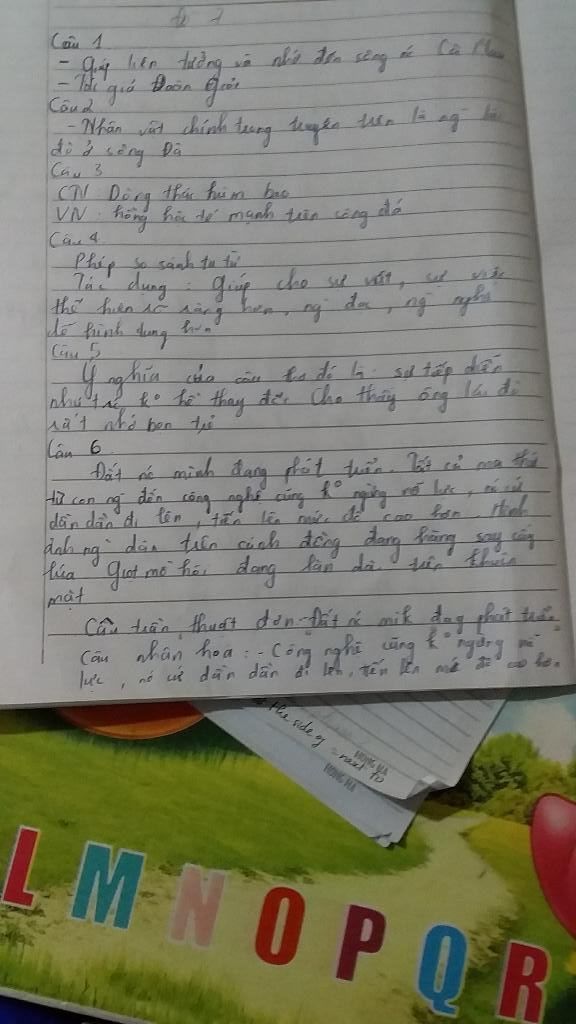 Câu 1
- Giúp liên tưởng và nhớ đến sông nc Cà Mau
- Tác giả Đoàn Giỏi
Câu 2
- Nhân vật chính trong truyện trên là ng lái
đò ở sông Đà
Câu 3
CN: Dòng thác hùm beo
VN: hồng hộc tế mạnh trên sông đá
Câu 4
Phép so sánh tu từ
Tác dụng: Giúp cho sự vật, sự việc
thể hiện rõ ràng hơn, ng đọc, ng nghe
dễ hình dung hơn
Câu 5
Ý nghĩa của câu đó là sự tiếp diễn
như k° hề thay đổi. Cho thấy ông lái đò
rất nhỏ
Câu 6
Đất nc mình đang phát triển. Tất cả mọi thứ
từ con ng đến công nghệ cũng k° ngừng nỗ lực, nó cứ
dần dần đi lên, tiến lên mức độ cao hơn. Hình
ảnh ng dân trên cánh đồng đang hăng say cấy
lúa. Giọt mồ hôi đang lăn dài trên khuôn
mặt
Câu trần thuật đơn: - Đất nc mik đag phát triển.
Câu nhân hoá: - Công nghệ cũng k° ngừng nỗ
lực, nó cứ dần dần đi lên, tiến lên mức độ cao hơn.
the side of = next to
HONG HA
HONG HA
L M N O P Q R